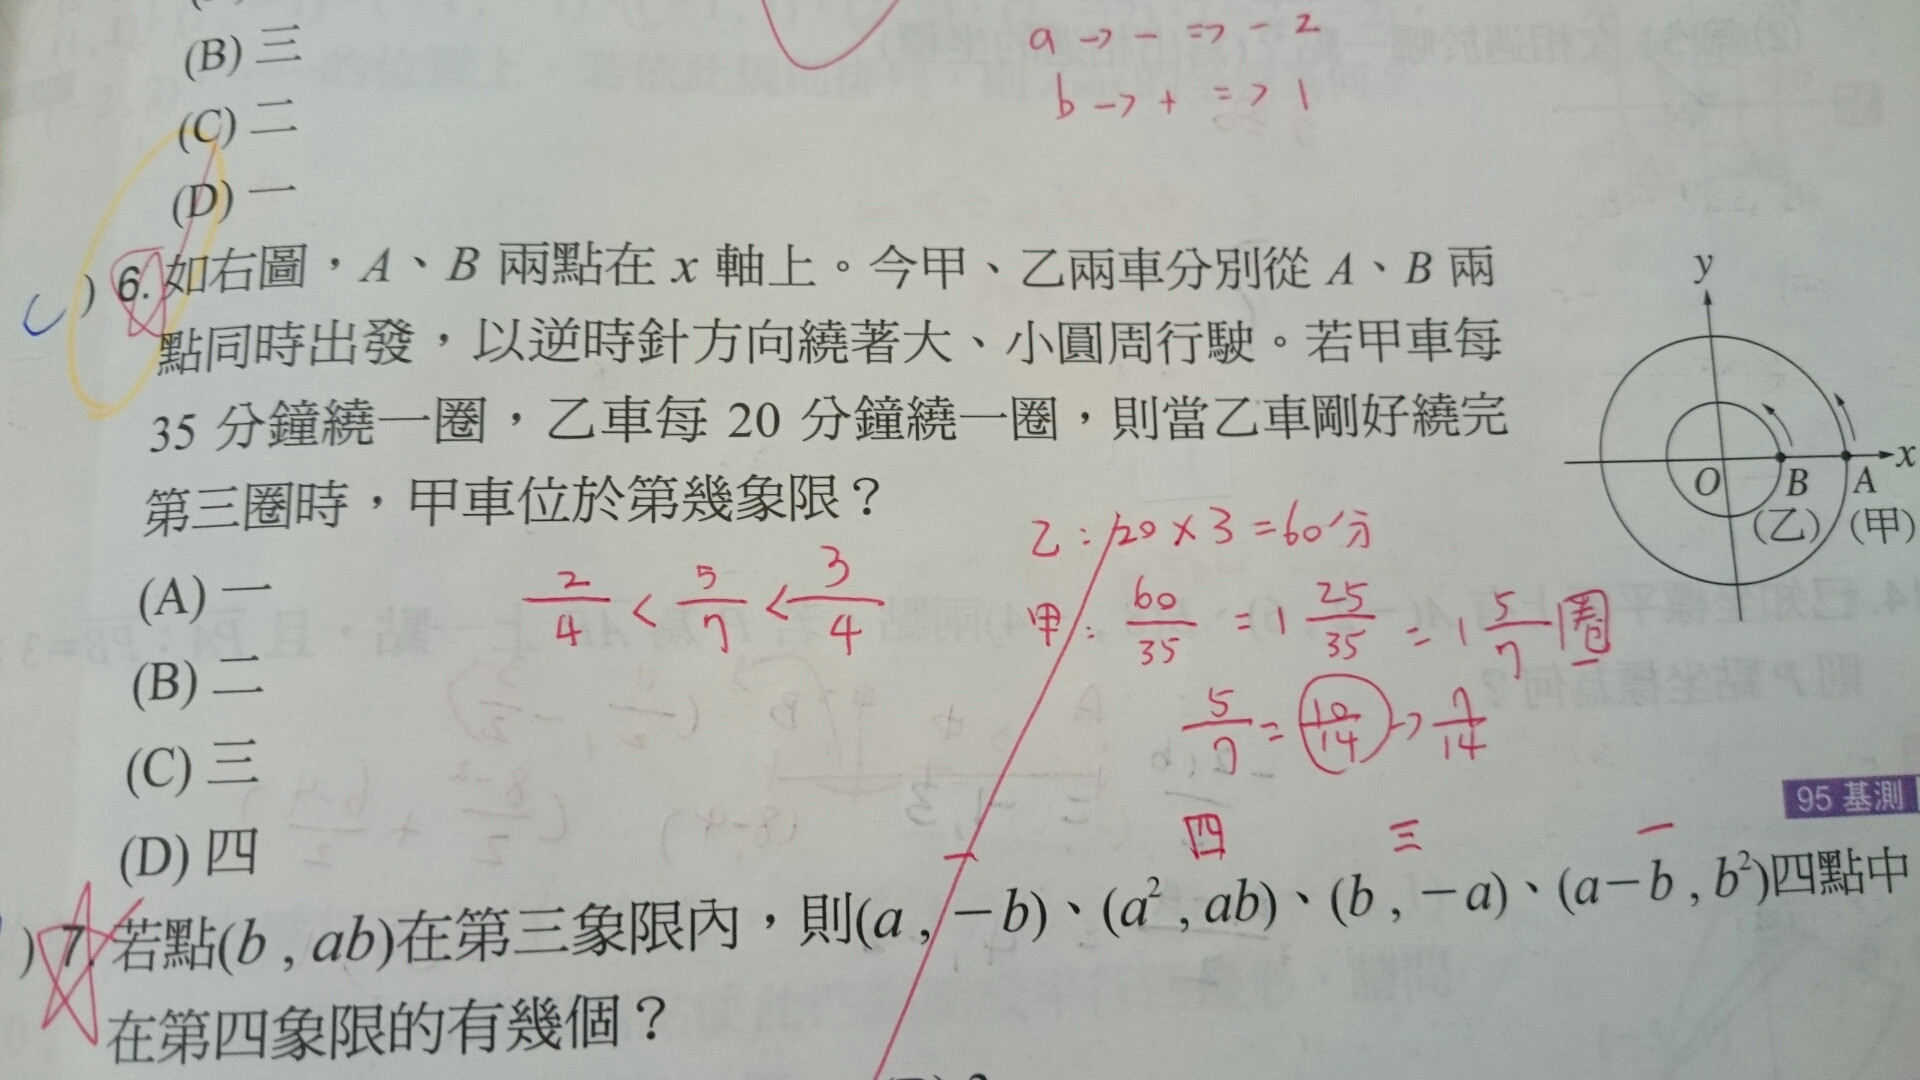 (B) 三
(C) 二
(D) 一
a → − => − 2
b → + => 1
6. 如右圖，A、B 兩點在 x 軸上。今甲、乙兩車分別從 A、B 兩
點同時出發，以逆時針方向繞著大、小圓周行駛。若甲車每
35 分鐘繞一圈，乙車每 20 分鐘繞一圈，則當乙車剛好繞完
第三圈時，甲車位於第幾象限？
(A) 一
(B) 二
(C) 三
(D) 四
y
x
O
B
A
(乙)
(甲)
乙：20 × 3 = 60分
甲：60/35 = 1 25/35 = 1 5/7 圈
2/4 < 5/7 < 3/4
5/7 = 10/14 → 7/14
95 基測
一 四 三 一
7. 若點(b , ab)在第三象限內，則(a , −b)、(a² , ab)、(b , −a)、(a−b , b²)四點中
在第四象限的有幾個？